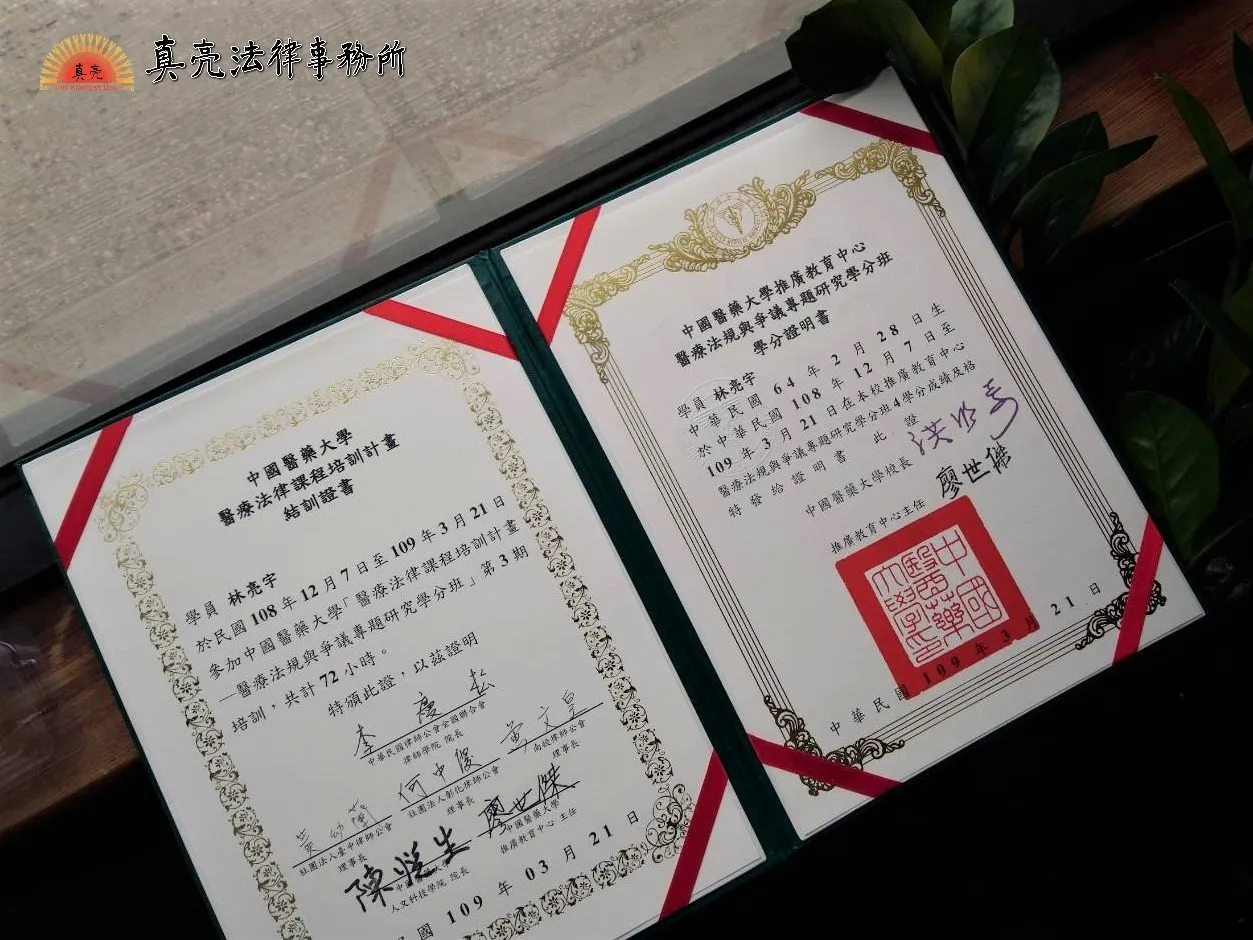 真亮法律事務所
真亮
中國醫藥大學
醫療法律課程培訓計畫
結訓證書
學員 林亮宇
於民國 108 年 12 月 7 日至 109 年 3 月 21 日
參加中國醫藥大學「醫療法律課程培訓計畫
—醫療法規與爭議專題研究學分班」第 3 期
培訓,共計 72 小時。
特頒此證,以茲證明
李慶松
中華民國律師公會全國聯合會
律師學院 院長
黃文皇
南投律師公會
理事長
何中俊
社團法人彰化律師公會
理事長
社團法人臺中律師公會
理事長
廖世傑
中國醫藥大學
推廣教育中心 主任
陳悅生
人文科技學院 院長
國 109 年 03 月 21 日
中國醫藥大學推廣教育中心
醫療法規與爭議專題研究學分班
學分證明書
學員 林亮宇
中華民國 64 年 2 月 28 日生
於中華民國 108 年 12 月 7 日至
109 年 3 月 21 日在本校推廣教育中心
醫療法規與爭議專題研究學分班4學分成績及格
特發給證明書 此證
中國醫藥大學校長 洪明奇
推廣教育中心主任 廖世傑
中國醫藥大學印
中華民國 109 年 3 月 21 日